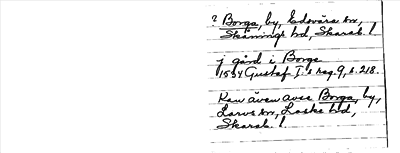 ? Borga, by, Edsvära sn,
Skånings hd, Skarab. l.
j gård i Borga
1534 Gustaf I:s reg. 9, s. 218.
Kan även avse Borga, by,
Larvs sn, Laske hd,
Skarab. l.